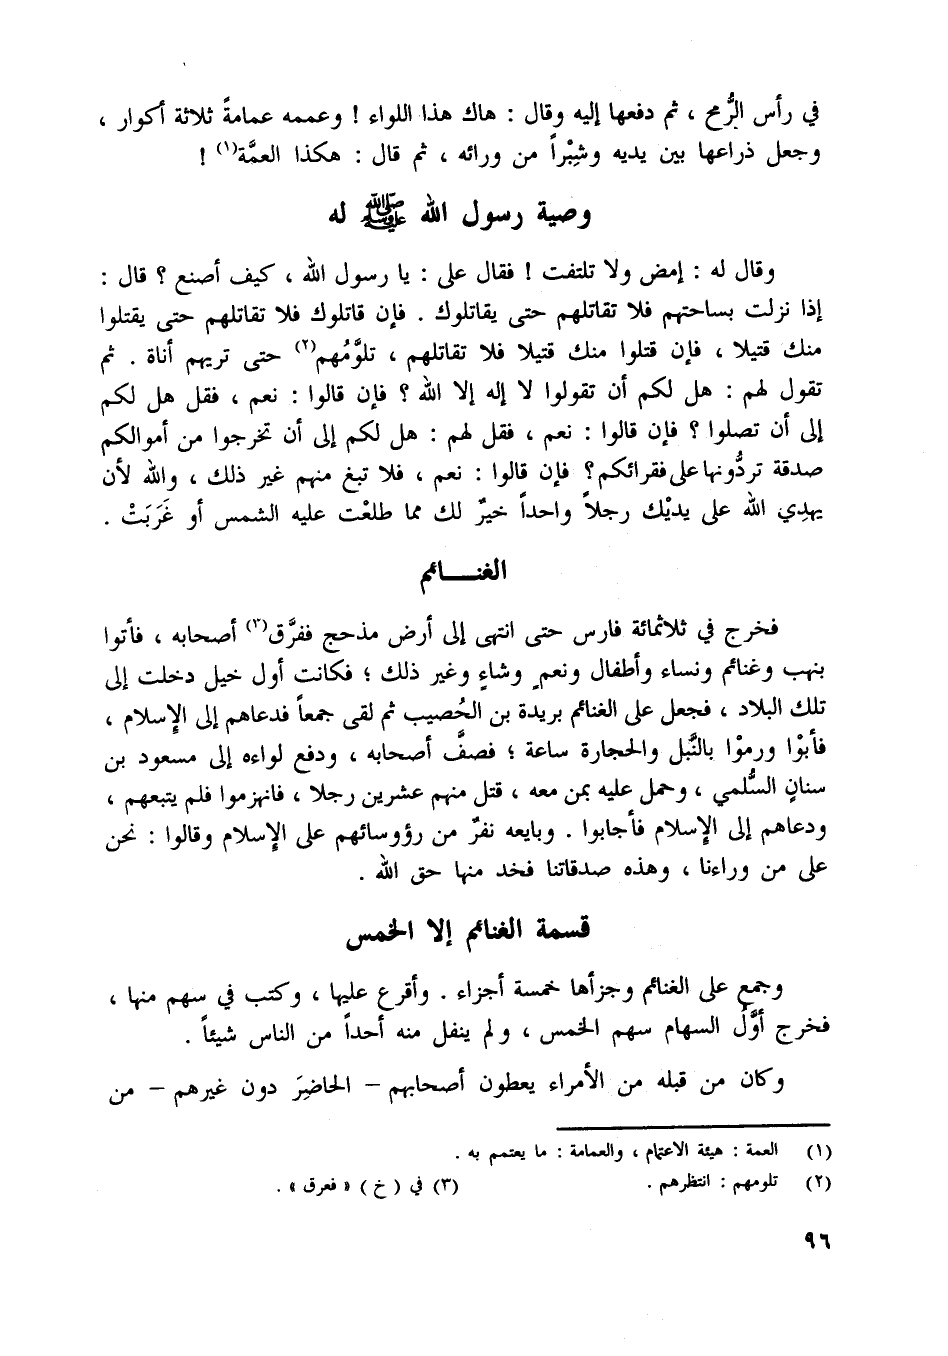 في رأس الرُّمح ، ثم دفعها إليه وقال : هاك هذا اللواء ! وعممه عمامةً ثلاثة أكوار ،
وجعل ذراعها بين يديه وشِبْراً من ورائه ، ثم قال : هكذا العمَّة(١) !
وصية رسول الله ﷺ له
وقال له : إمض ولا تلتفت ! فقال على : يا رسول الله ، كيف أصنع ؟ قال :
إذا نزلت بساحتهم فلا تقاتلهم حتى يقاتلوك . فإن قاتلوك فلا تقاتلهم حتى يقتلوا
منك قتيلا ، فإن قتلوا منك قتيلا فلا تقاتلهم ، تلوَّمُهم(٢) حتى تريهم أناة . ثم
تقول لهم : هل لكم أن تقولوا لا إله إلا الله ؟ فإن قالوا : نعم ، فقل هل لكم
إلى أن تصلوا ؟ فإن قالوا : نعم ، فقل لهم : هل لكم إلى أن تخرجوا من أموالكم
صدقة تردُّونها على فقرائكم ؟ فإن قالوا : نعم ، فلا تبغ منهم غير ذلك ، والله لأن
يهدِي الله على يديْك رجلاً واحداً خيرٌ لك مما طلعْت عليه الشمس أو غَرَبَتْ .
الغنـــائم
فخرج في ثلاثمائة فارس حتى انتهى إلى أرض مذحج ففرَّق(٣) أصحابه ، فأتوا
بنهب وغنائم ونساء وأطفال ونعمٍ وشاءٍ وغير ذلك ؛ فكانت أول خيل دخلت إلى
تلك البلاد ، فجعل على الغنائم بريدة بن الحُصيب ثم لقى جمعاً فدعاهم إلى الإسلام ،
فأبوْا ورموْا بالنَّبل والحجارة ساعة ؛ فصفَّ أصحابه ، ودفع لواءه إلى مسعود بن
سنانٍ السُّلمي ، وحمل عليه بمن معه ، قتل منهم عشرين رجلا ، فانهزموا فلم يتبعهم ،
ودعاهم إلى الإسلام فأجابوا . وبايعه نفرٌ من رؤوسائهم على الإسلام وقالوا : نحن
على من وراءنا ، وهذه صدقاتنا فخد منها حق الله .
قسمة الغنائم إلا الخمس
وجمع على الغنائم وجزأها خمسة أجزاء . وأقرع عليها ، وكتب في سهم منها ،
فخرج أوَّلُ السهام سهم الخمس ، ولم ينفل منه أحداً من الناس شيئاً .
وكان من قبله من الأمراء يعطون أصحابهم – الحاضِرَ دون غيرهم – من
(١) العمة : هيئة الاعتمام ، والعمامة : ما يعتمم به .
(٢) تلومهم : انتظرهم . (٣) في ( خ ) « فعرق » .
٩٦